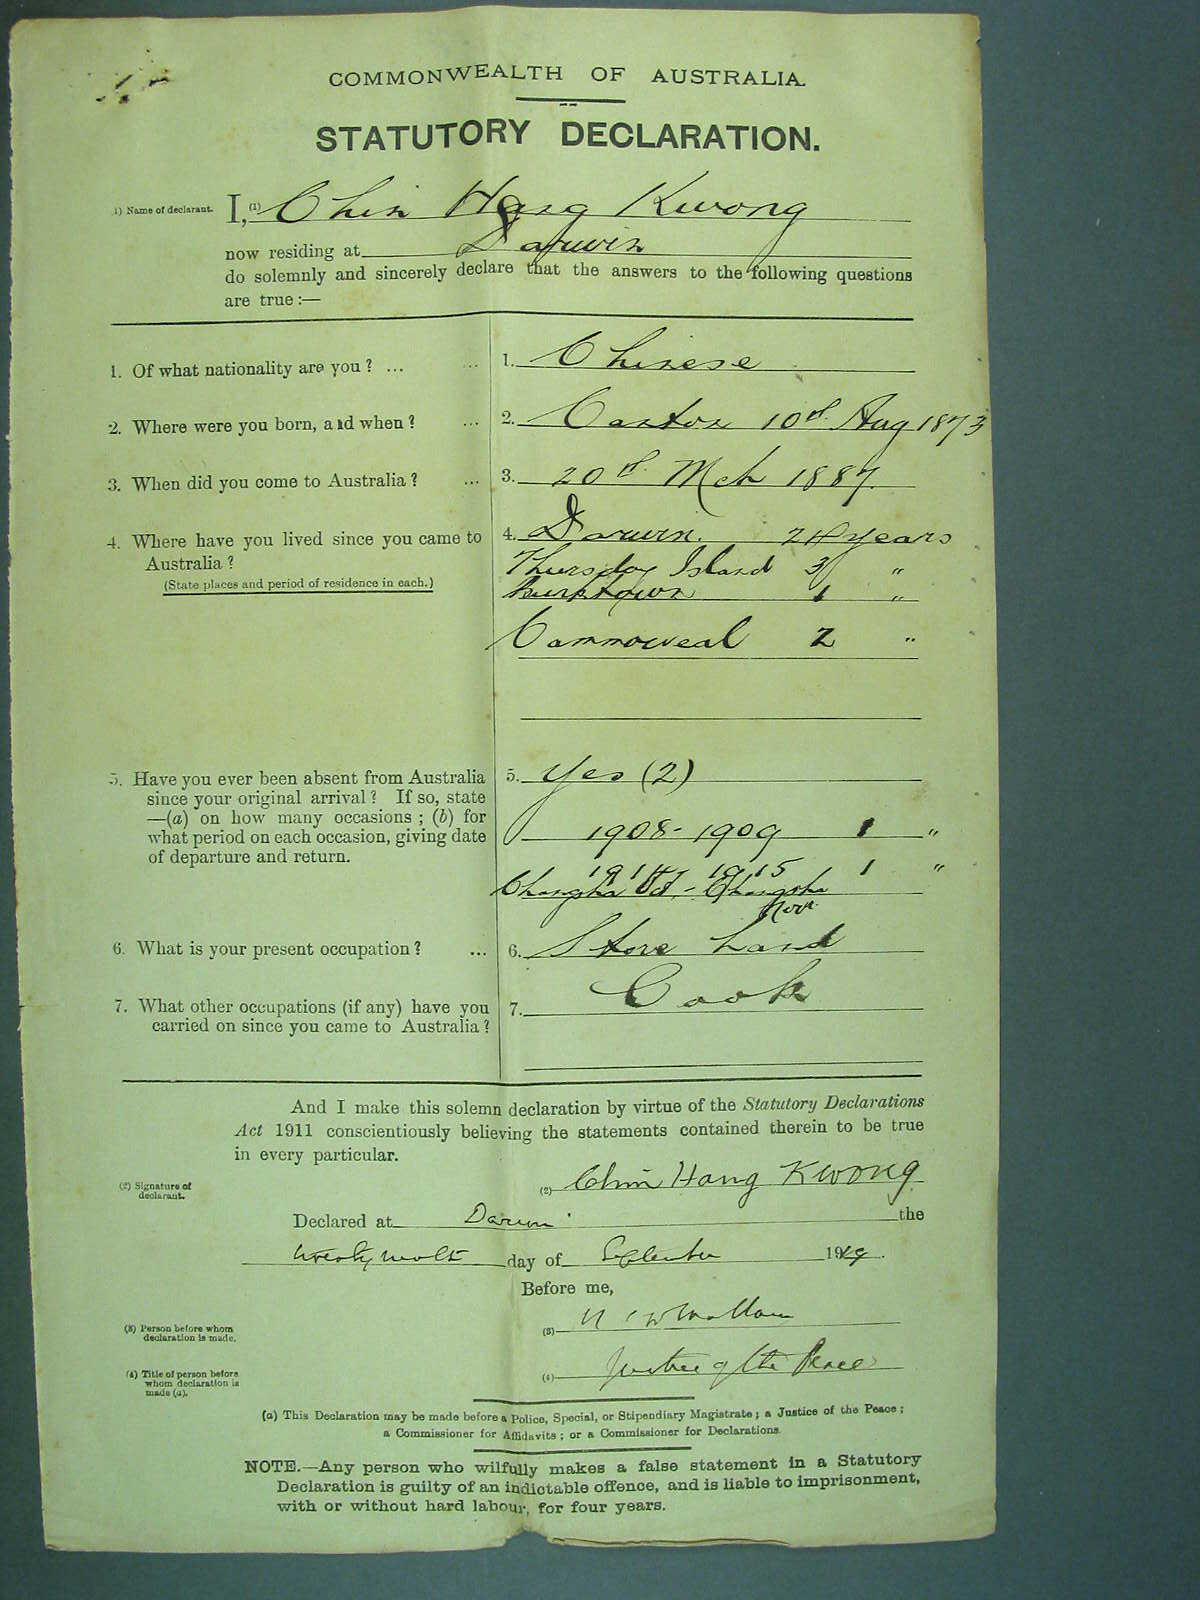 COMMONWEALTH OF AUSTRALIA.
STATUTORY DECLARATION.
(1) Name of declarant. I, (1) Chin Hang Kwong
now residing at Darwin
do solemnly and sincerely declare that the answers to the following questions
are true :—
1. Of what nationality are you ? ... ... 1. Chinese
2. Where were you born, and when ? ... 2. Canton 10th Aug 1873
3. When did you come to Australia ? ... 3. 20th Mch 1887.
4. Where have you lived since you came to 4. Darwin. 24 years
Australia ? Thursday Island 3 "
(State places and period of residence in each.) 1 "
Cammoweal 2 "
5. Have you ever been absent from Australia 5. Yes (2)
since your original arrival ? If so, state
—(a) on how many occasions ; (b) for
what period on each occasion, giving date 1908 - 1909 1 "
of departure and return. 1914 1915 1 "
Changsha Oct. - Changsha
Novr
6. What is your present occupation ? ... 6. Store hand
7. What other occupations (if any) have you 7. Cook
carried on since you came to Australia ?
And I make this solemn declaration by virtue of the Statutory Declarations
Act 1911 conscientiously believing the statements contained therein to be true
in every particular.
(2) Signature of
declarant. (2) Chin Hang Kwong
Declared at Darwin the
day of September 1919.
Before me,
(3) Person before whom
declaration is made. (3)
(4) Title of person before
whom declaration is
made (a). (4) Justice of the Peace
(a) This Declaration may be made before a Police, Special, or Stipendiary Magistrate ; a Justice of the Peace ;
a Commissioner for Affidavits ; or a Commissioner for Declarations.
NOTE.—Any person who wilfully makes a false statement in a Statutory
Declaration is guilty of an indictable offence, and is liable to imprisonment,
with or without hard labour, for four years.